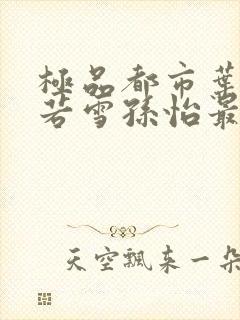 極品都市葉
若雪孫怡最
天空飄來一朵